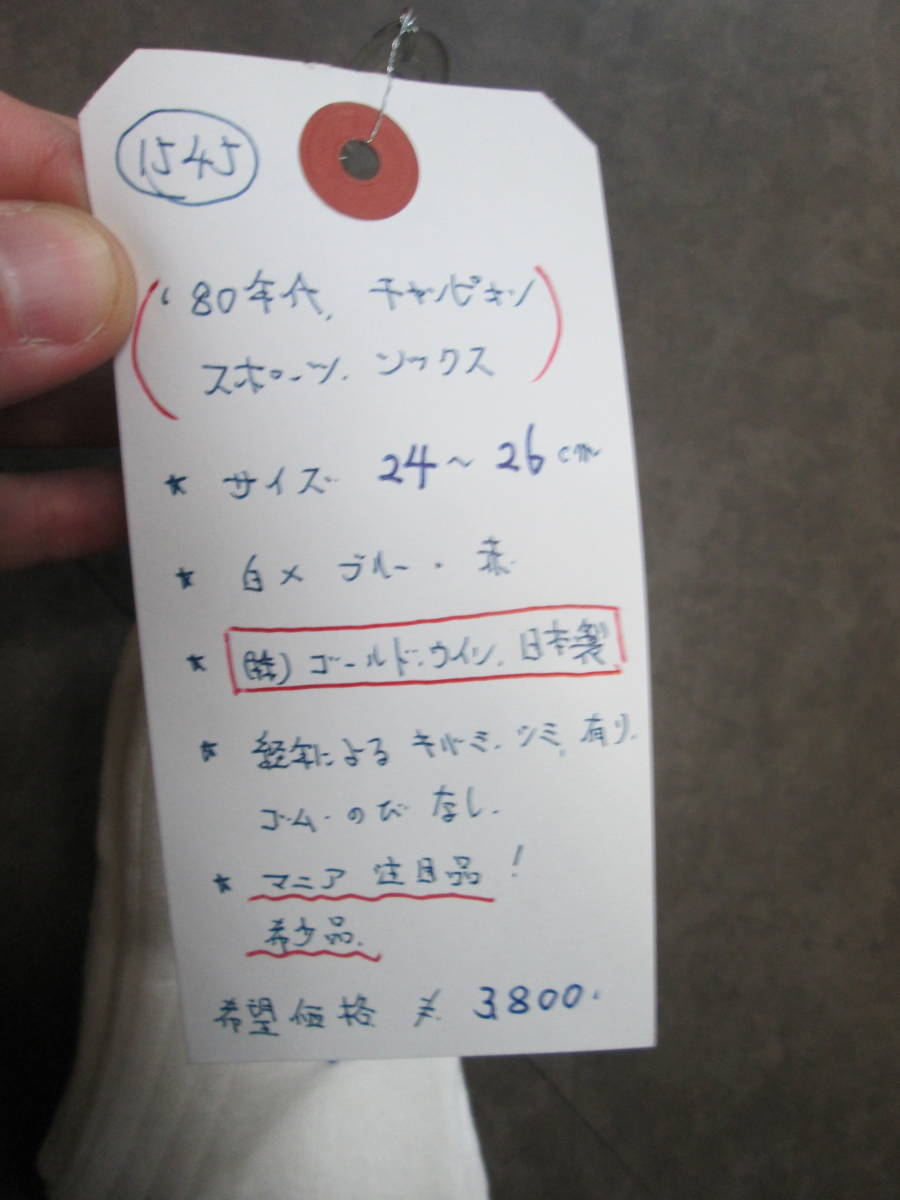 1545
'80年代、チャンピオン
スポーツ、ソックス
★ サイズ 24～26cm
★ 白×ブルー・赤
★ (株)ゴールドウイン、日本製
★ 経年による キバミ、シミ、有り、
ゴム・のび なし、
★ マニア 注目品!
希少品、
希望価格 ¥3800.